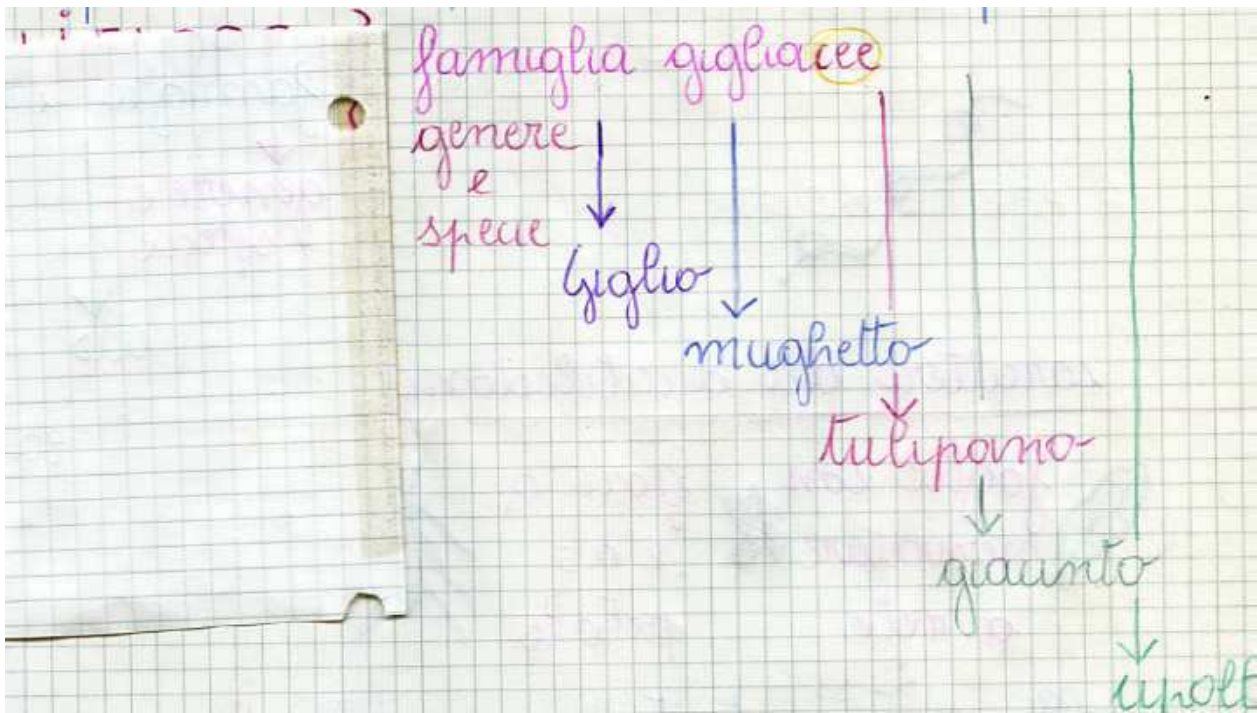 famiglia gigliacee
genere
e
specie
Giglio
mughetto
tulipano
giacinto
cipoll